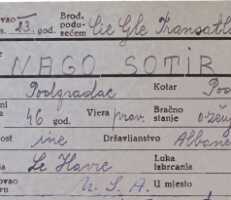 ovao 23. god. Brod. podu- Cie Gle Transatl
sećem
NAGO SOTIR
Podgradac Kotar Pod
46 god. Vjera prav. Bračno ožeg
stanje
ost ine Državljanstvo Albane
Le Havre Luka
Iskrcanja
ovao U. S. A. U mjesto